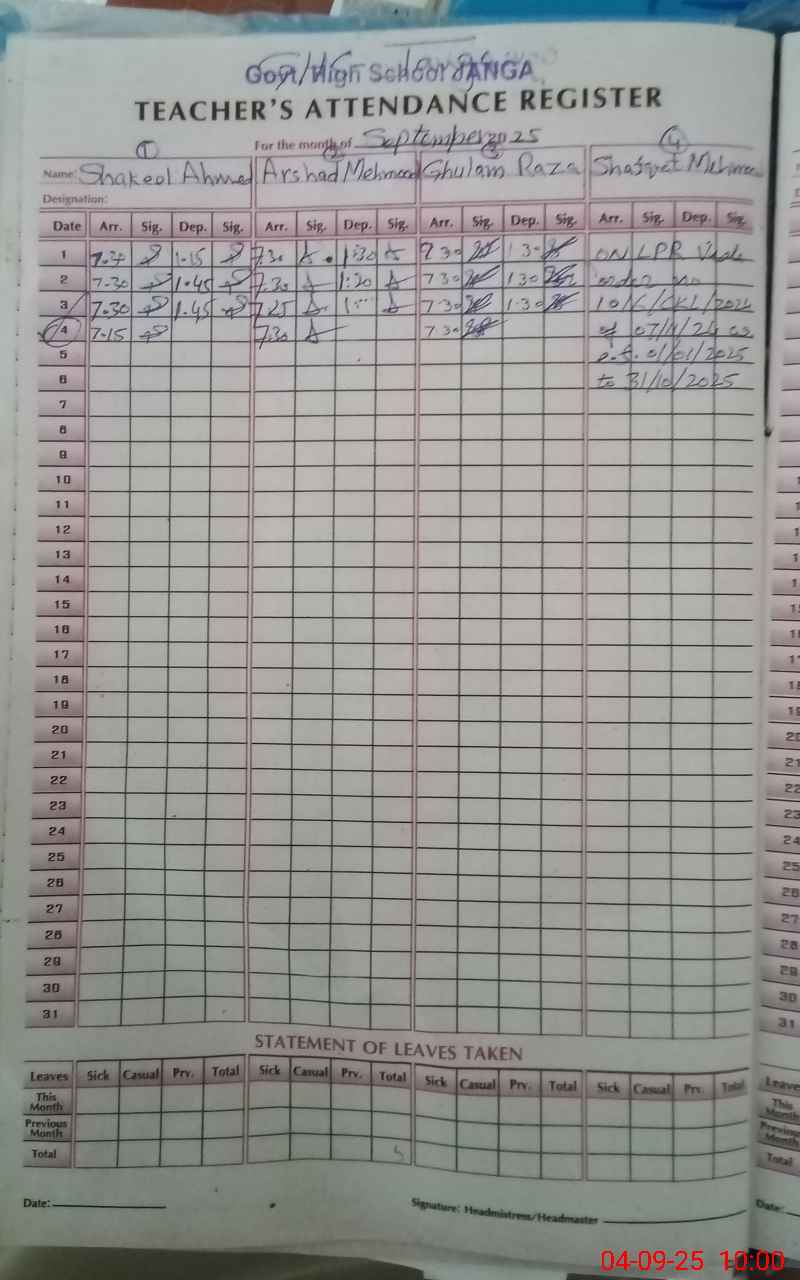 Govt/High School JANGA
TEACHER'S ATTENDANCE REGISTER
① ② For the month of September 2025 ③ ④
Name: Shakeel Ahmed Arshad Mehmood Ghulam Raza Shafqat Mehmood
Designation:
Date Arr. Sig. Dep. Sig. Arr. Sig. Dep. Sig. Arr. Sig. Dep. Sig. Arr. Sig. Dep. Sig.
1 7.30 1.15 7.30 1:30 7 30 1 30 ON LPR Vide
2 7.30 1.45 7.30 1:30 7 30 1 30 order no
3 7.30 1.45 7.25 7 30 1.30 2024
4 7.15 7.30 7 30 of 07/11/24
5 01/01/2025
6 to 31/10/2025
7
8
9
10
11
12
13
14
15
16
17
18
19
20
21
22
23
24
25
26
27
28
29
30
31
STATEMENT OF LEAVES TAKEN
Leaves Sick Casual Prv. Total Sick Casual Prv. Total Sick Casual Prv. Total Sick Casual Prv. Total
This Month
Previous Month
Total
Date: Signature: Headmistress/Headmaster
04-09-25 10:00